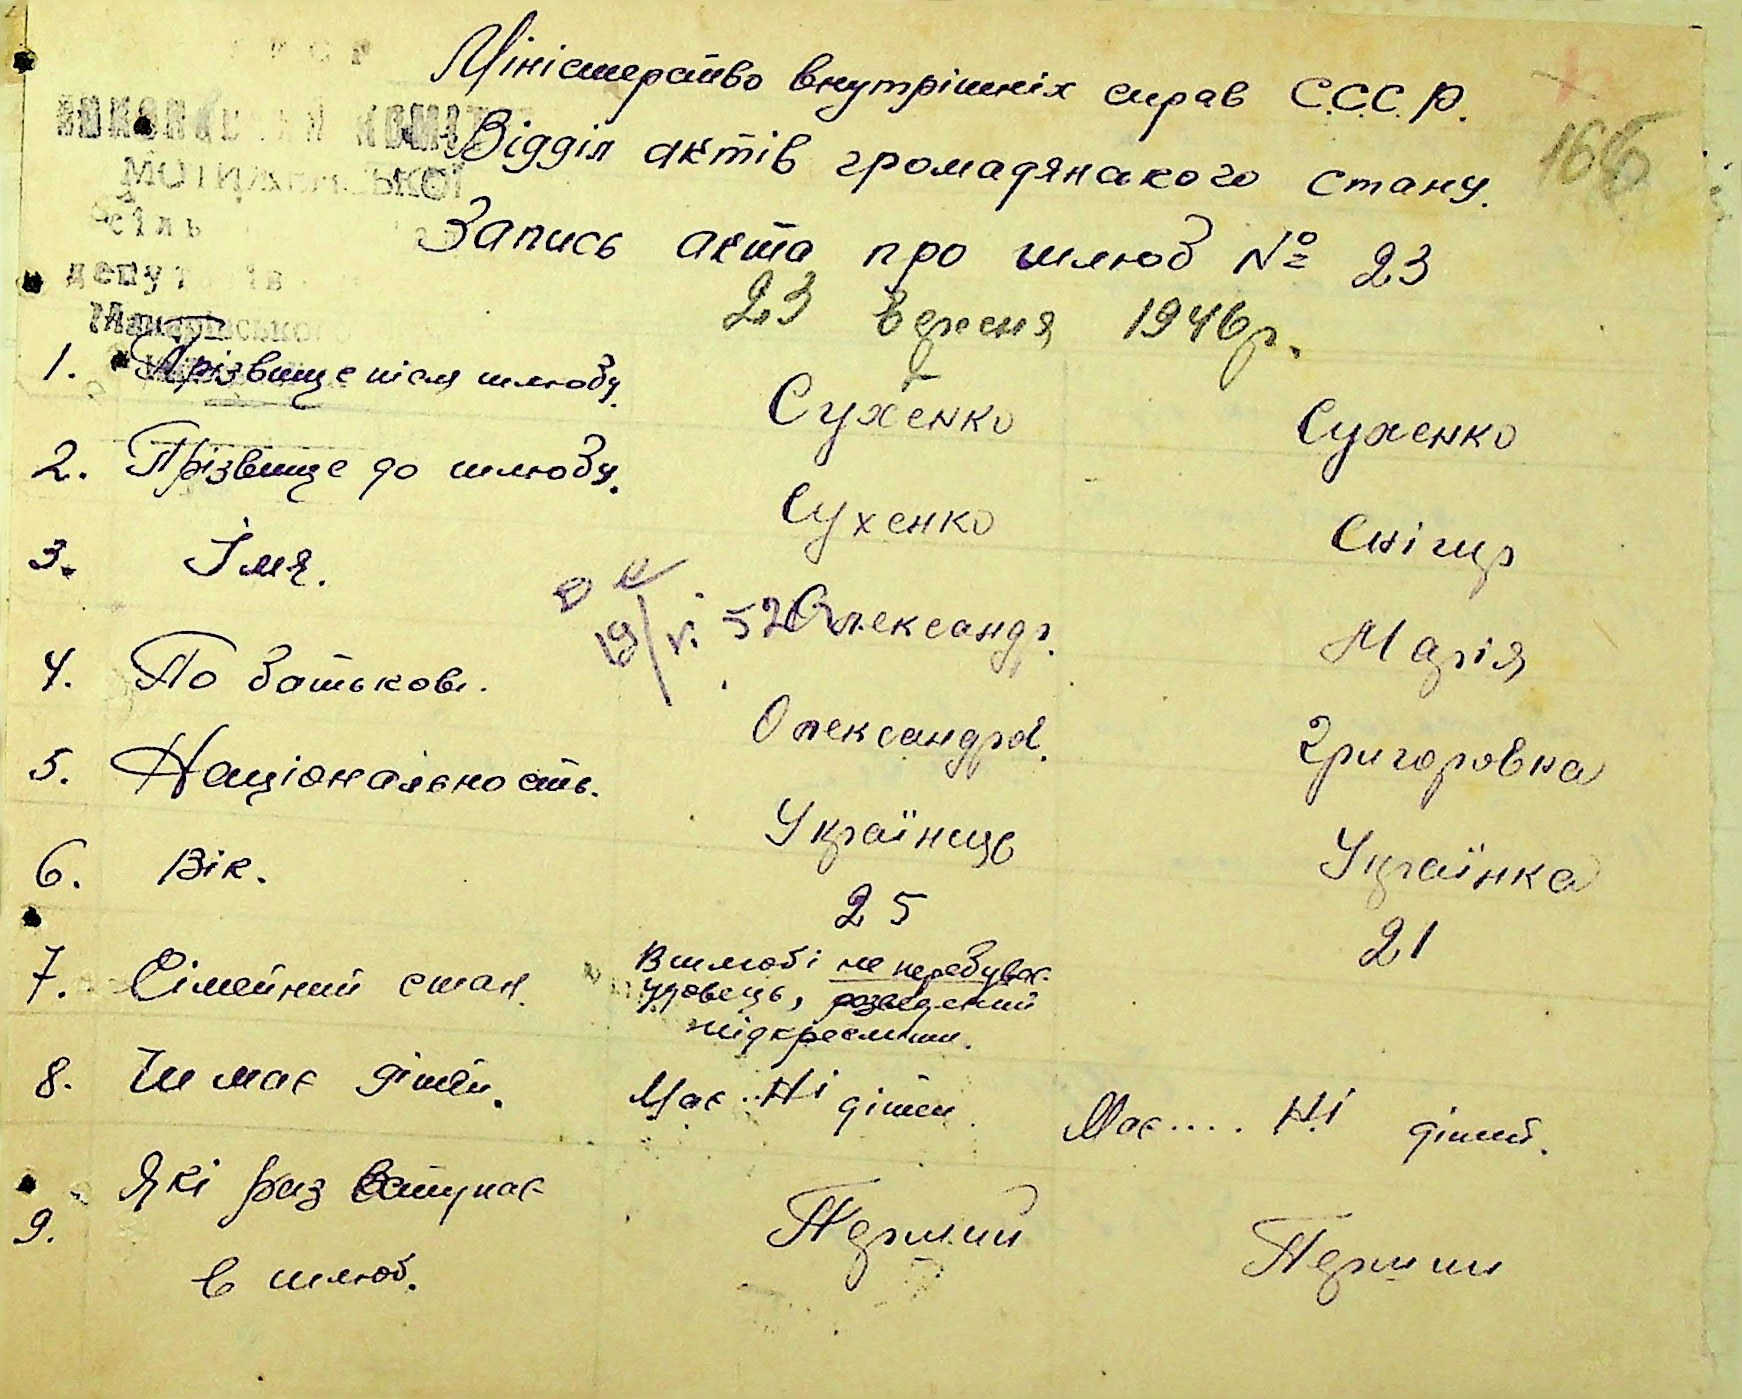 Міністерство внутрішніх справ С.С.С.Р.
Відділ актів громадянського стану.
166
Запись акта про шлюб № 23
23 вересня 1946р.
1. Прізвище після шлюбу. Сухенко Сухенко
2. Прізвище до шлюбу. Сухенко Снігир
3. Імя. Олександр. Марія
19/VI 52
4. По батькові. Олександров. Григоровна
5. Національность. Українець Українка
6. Вік. 25 21
7. Сімейний стан. В шлюбі не перебував.
Удовець, розведений
підкреслити.
8. Чи має дітей. Має.. Ні дітей Має.... Ні дітей.
9. Які раз вступає Перший Перший
в шлюб.